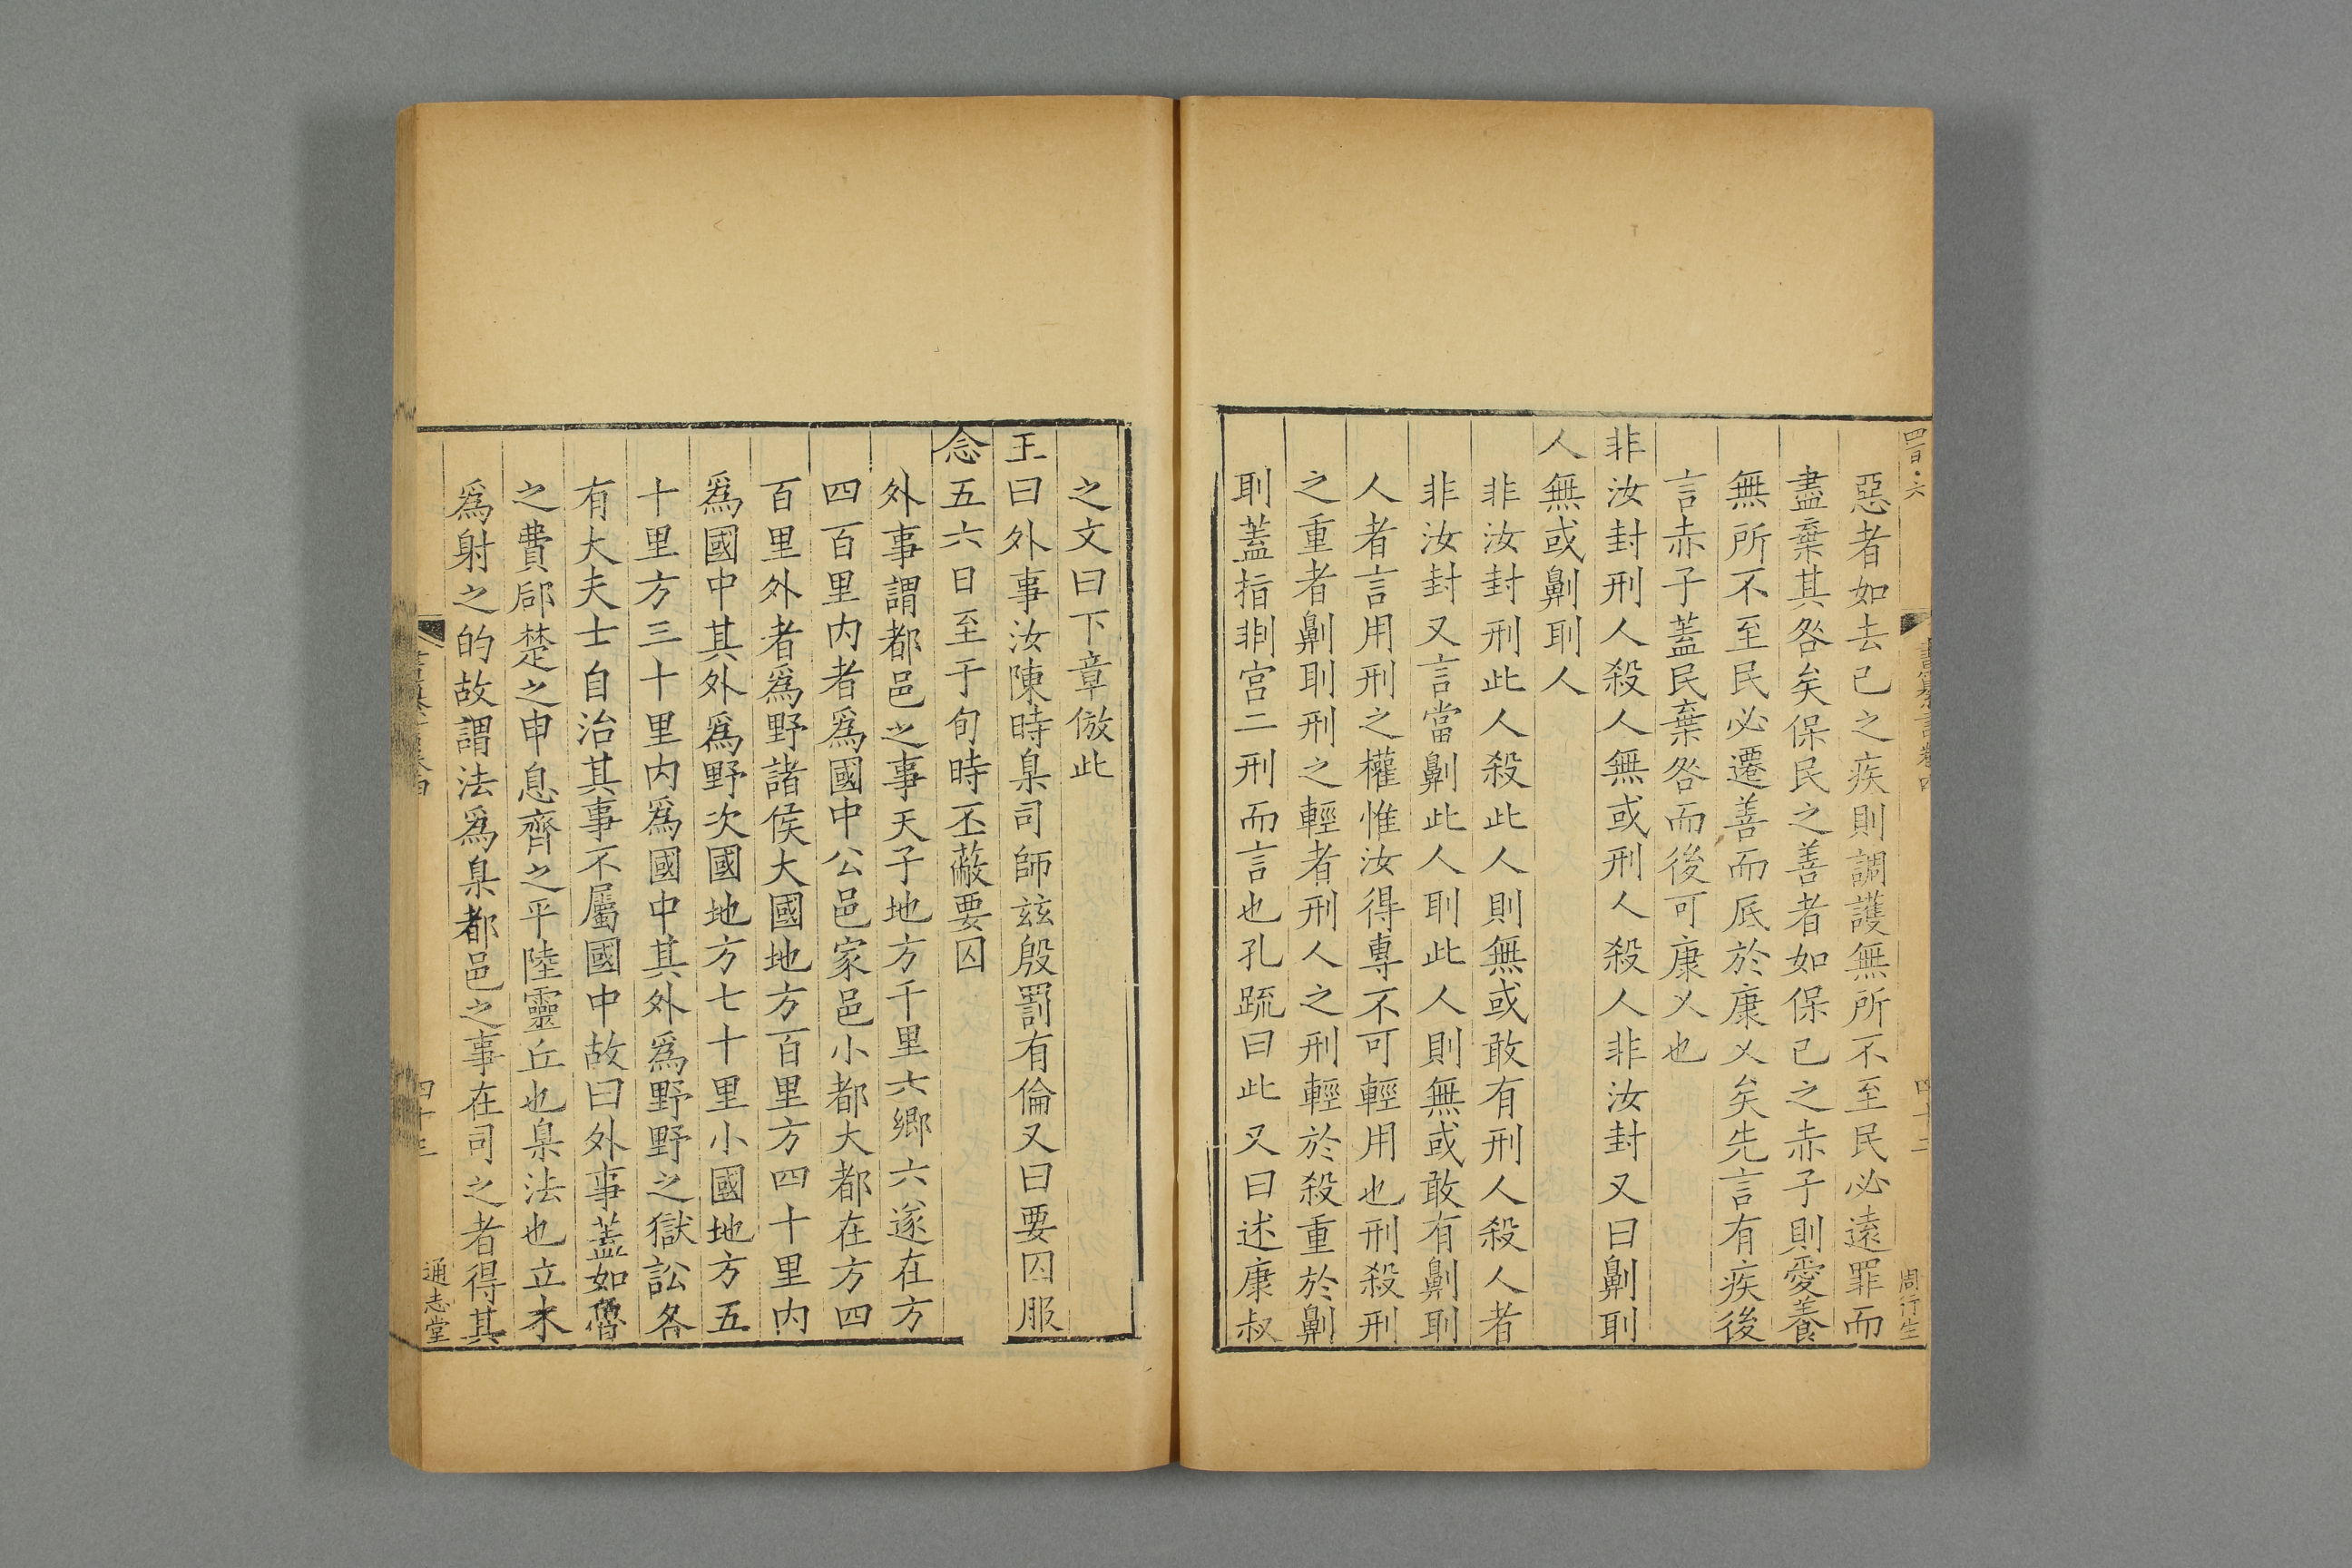 惡者如去己之疾則調護無所不至民必遠罪而
盡棄其咎矣保民之善者如保己之赤子則愛養
無所不至民必遷善而底於康乂矣先言有疾後
言赤子蓋民棄咎而後可康乂也
非汝封刑人殺人無或刑人殺人非汝封又曰劓刵
人無或劓刵人
非汝封刑此人殺此人則無或敢有刑人殺人者
非汝封又言當劓此人刵此人則無或敢有劓刵
人者言用刑之權惟汝得專不可輕用也刑殺刑
之重者劓刵刑之輕者刑人之刑輕於殺重於劓
刵蓋指剕宮二刑而言也孔疏曰此又曰述康叔
之文曰下章倣此
王曰外事汝陳時臬司師茲殷罰有倫又曰要囚服
念五六日至于旬時丕蔽要囚
外事謂都邑之事天子地方千里六鄉六遂在方
四百里内者爲國中公邑家邑小都大都在方四
百里外者爲野諸侯大國地方百里方四十里内
爲國中其外爲野次國地方七十里小國地方五
十里方三十里内爲國中其外爲野野之獄訟各
有大夫士自治其事不屬國中故曰外事蓋如魯
之費郈楚之申息齊之平陸靈丘也臬法也立木
爲射之的故謂法爲臬都邑之事在司之者得其
通志堂